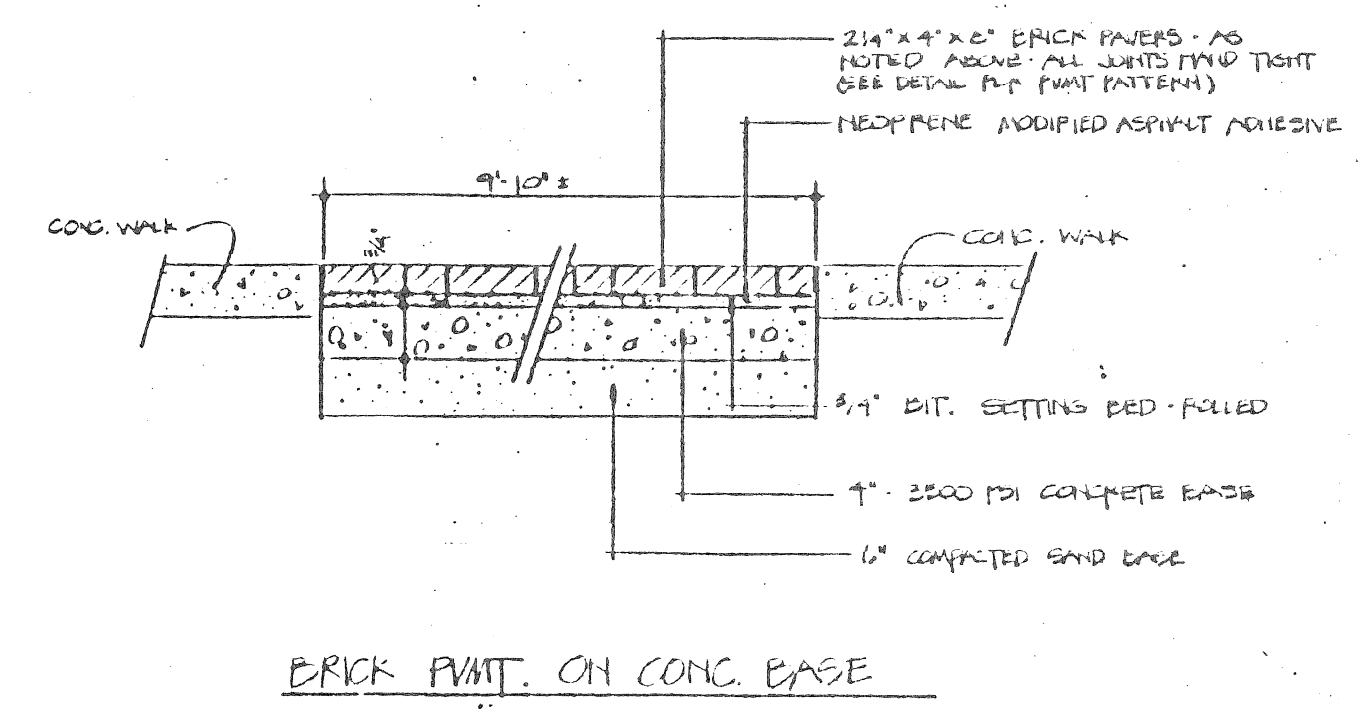 2 1/4" x 4" x 8" BRICK PAVERS · AS
NOTED ABOVE · ALL JOINTS HAND TIGHT
(SEE DETAIL FOR PVMT PATTERN)
NEOPRENE MODIFIED ASPHALT ADHESIVE
9'-10" ±
CONC. WALK
CONC. WALK
3/4"
3/4" BIT. SETTING BED · ROLLED
4" · 3500 PSI CONCRETE BASE
6" COMPACTED SAND BASE
BRICK PVMT. ON CONC. BASE